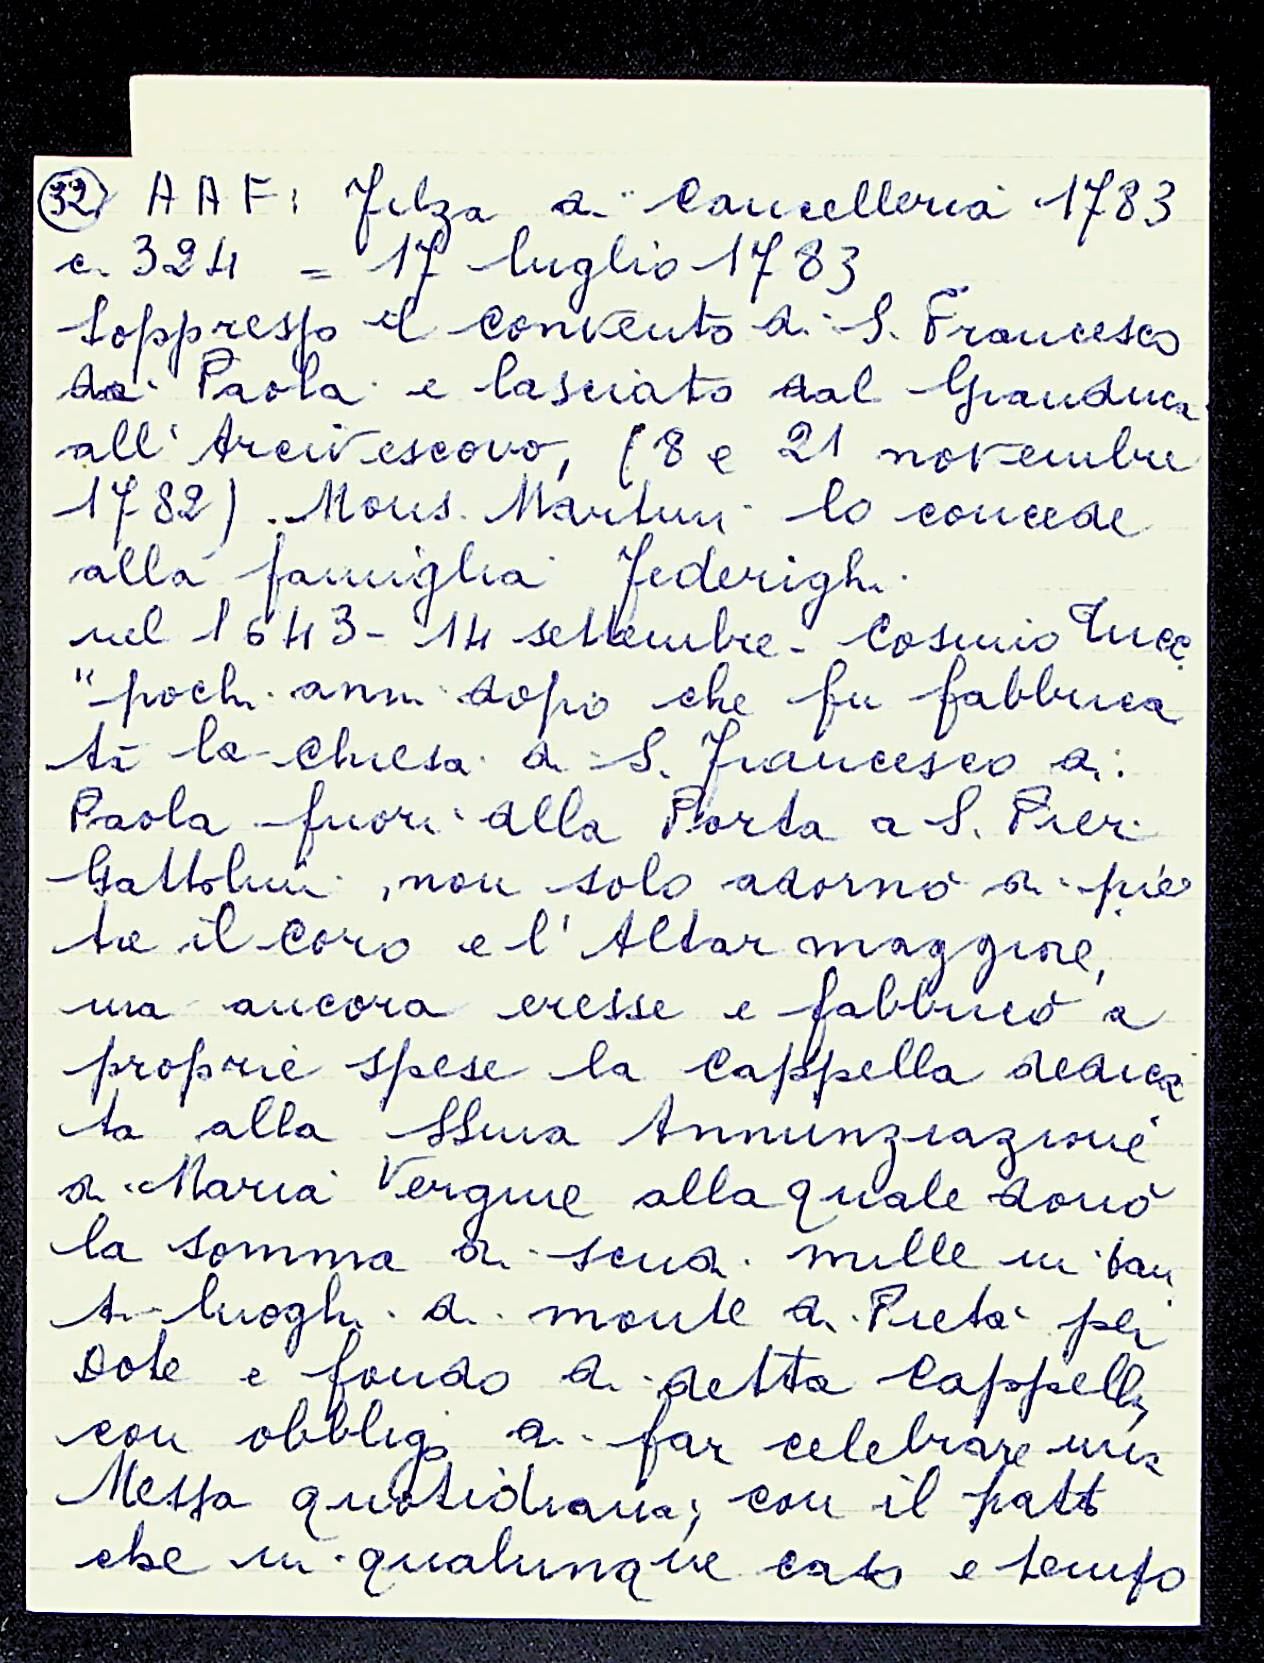 32) A A F: Filza di Cancelleria 1783
c. 324 = 17 luglio 1783
Soppresso il convento di S. Francesco
da Paola e lasciato dal Granduca
all'Arcivescovo, (8 e 21 novembre
1782). Mons. Martini lo concede
alla famiglia Federighi.
nel 1643 - 14 settembre - Cosimo
"pochi anni dopo che fu fabbrica
ta la Chiesa di S. Francesco di
Paola fuori alla Porta a S. Pier
Gattolini, non solo adornò di pie
tre il Coro e l'Altar maggiore,
ma ancora eresse e fabbricò a
proprie spese la Cappella dedica
ta alla SSma Annunziazione
di Maria Vergine alla quale donò
la somma di scudi mille in tan
ti luoghi di monte di Pietà per
Dote e fondo di detta Cappella,
con obbligo di far celebrare una
Messa quotidiana; con il patto
che in qualunque caso e tempo